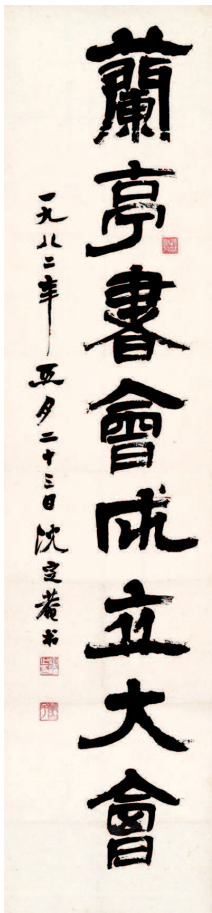 蘭亭書會成立大會
一九八二年月二十三日沈定菴书